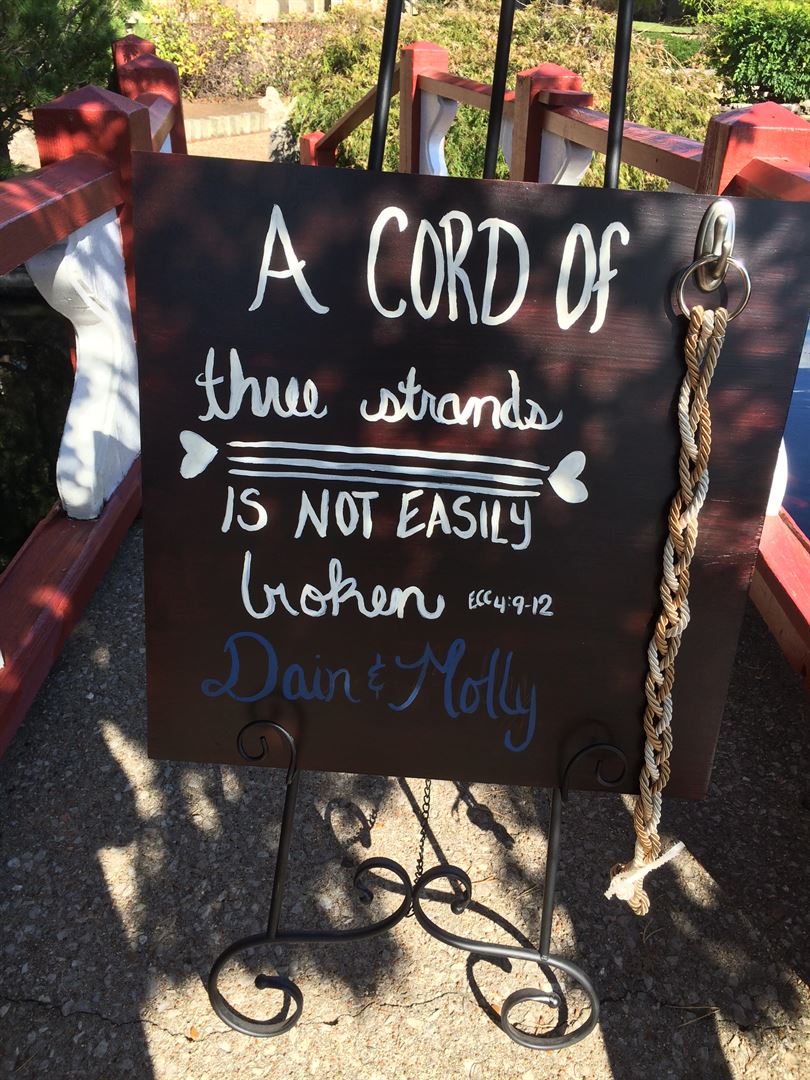 A CORD OF
three strands
IS NOT EASILY
broken ECC 4:9-12
Dain & Molly